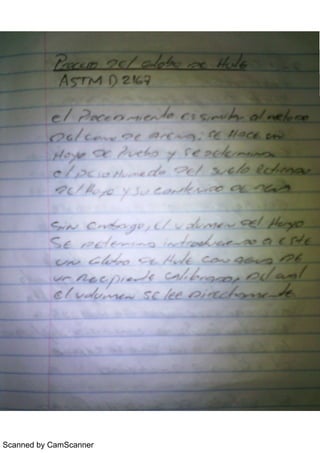 Proceso del Globo de Hule
ASTM D 2167
el Procedimiento es similar al metodo
Del cono de arena; se Hace un
Hoyo de Prueba y se determina
el peso Humedo del suelo Retirado
del Hoyo y su contenido de agua
Sin Embargo, el volumen del Hoyo
Se determina introduciendo a este
un Globo de Hule con agua DE
un Recipiente calibrado, Del cual
el volumen se lee Directamente
Scanned by CamScanner